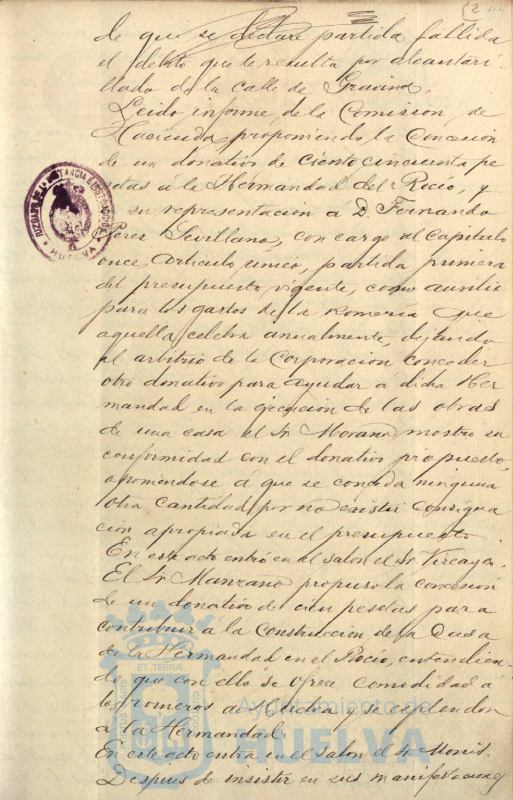 52
de que se declare partida fallida
el debito que le resulta por alcantari
llado de la calle de Gravina.
Leido informe de la Comision de
Hacienda, proponiendo la Concesion
de un donativo de ciento cincuenta pe
setas á la Hermandad del Rocío, y
en su representacion á D. Fernando
Perez Sevillano, con cargo al Capitulo
once, articulo unico, partida primera
del presupuesto vigente, como auxilio
para los gastos de la romería que
aquella celebra anualmente, dejando
al arbitrio de la Corporacion conceder
otro donativo para ayudar á dicha Her
mandad en la ejecucion de las obras
de una casa el Sr Morano mostro su
conformidad con el donativo propuesto,
oponiendose a que se conceda ninguna
otra cantidad por no existir consigna
cion apropiada en el presupuesto.
En este acto entró en el salon el Sr Vizcaya.
El Sr Manzano propuso la concesion
de un donativo de cien pesetas para
contribuir á la Construccion de la Casa
de la Hermandad en el Rocío, entendien
do que con ello se ofrece comodidad á
los romeros de Huelva y se dá esplendor
a la Hermandad.
En este acto entra en el salon el Sr Monis.
Despues de insistir en sus manifestaciones
HUELVA
ET TERRÆ
Ayuntamiento de
HUELVA